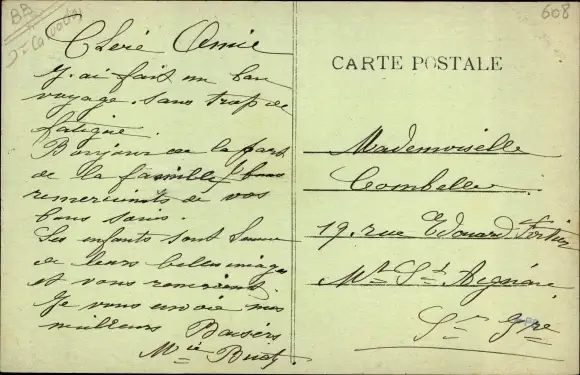 BB
608
Chère Amie
J. ai fait un bon
voyage. sans trop de
fatigue.
Bonjour de la part
de la famille
remerciments de vos
bons soins.
Les enfants sont
de leurs belles images
et vous remercient.
Je vous envoie mes
meilleurs Baisers
Mie
CARTE POSTALE
Mademoiselle
Combelle.
19. rue Edouard Fortier
Mt St Aignan
Sne Ire